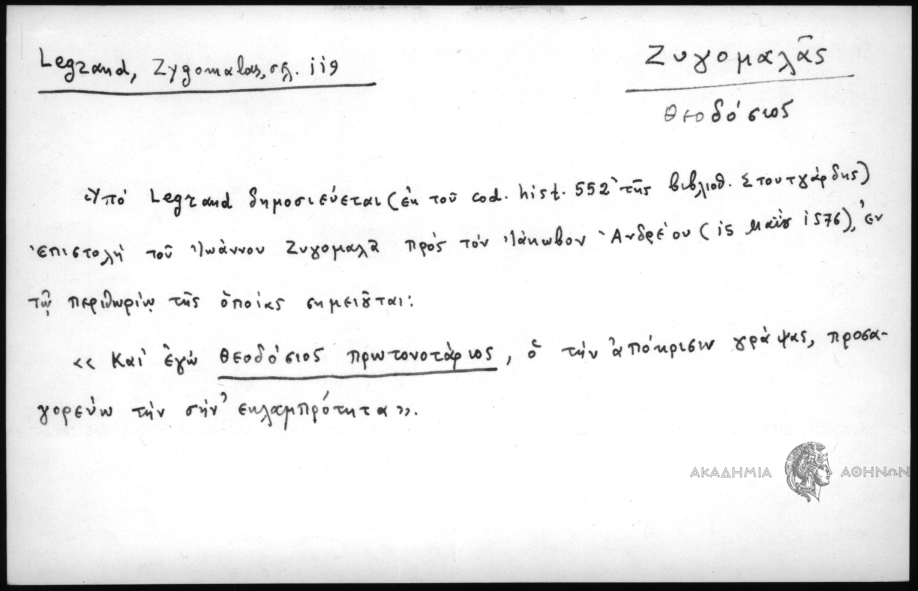 Legrand, Zygomalas, σελ. 119
Ζυγομαλᾶς
Θεοδόσιος
Ὑπό Legrand δημοσιεύεται (ἐκ τοῦ cod. hist. 552 τῆς βιβλιοθ. Στουτγάρδης)
ἐπιστολή τοῦ Ἰωάννου Ζυγομαλᾶ πρός τόν Ἰάκωβον Ἀνδρέου (15 Μαΐου 1576), ἐν
τῷ περιθωρίῳ τῆς ὁποίας σημειοῦται:
«Καί ἐγώ Θεοδόσιος πρωτονοτάριος, ὁ τήν ἀπόκρισιν γράψας, προσα-
γορεύω τήν σήν ἐκλαμπρότητα».
ΑΚΑΔΗΜΙΑ ΑΘΗΝΩΝ